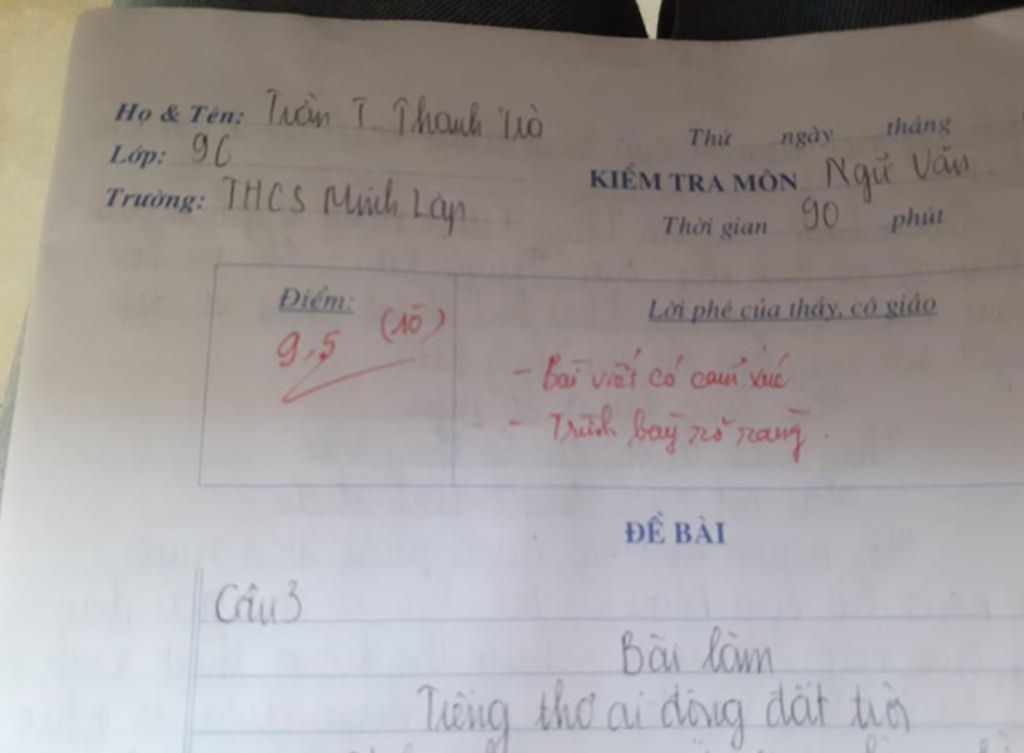 Họ & Tên: Trần T. Thanh Trà
Lớp: 9C
Trường: THCS Minh Lập
Thứ ngày tháng
KIỂM TRA MÔN Ngữ Văn
Thời gian 90 phút
Điểm:
9,5 (10)
Lời phê của thầy, cô giáo
- Bài viết có cảm xúc
- Trình bày rõ ràng.
ĐỀ BÀI
Câu 3
Bài làm
Tiếng thơ ai động đất trời